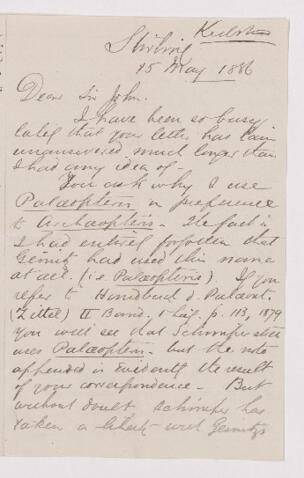 Kidston
Stirling
15 May 1886
Dear Sir John.
I have been so busy
lately that your letter has lain
unanswered much longer than
I had any idea of -
You ask why I use
Palæopteris in preference
to Archæopteris. The fact is
I had entirely forgotten that
Geinitz had used this name
at all. (i.e. Palæopteris). If you
refer to Handbuch d. Palæont.
(Zittel) II Band. 1 Lief. p. 113, 1879
You will see that Schimper still
uses Palæopteris - but the note
appended is evidently the result
of your correspondence - But
without doubt Schimper has
taken a liberty with Geinitz's